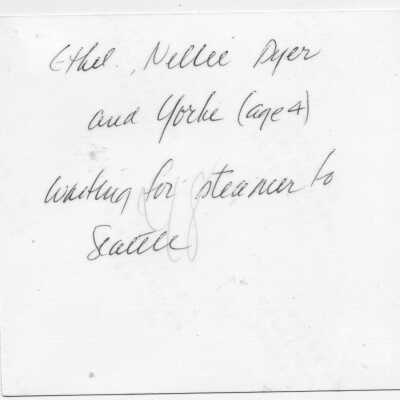 Ethel., Nellie Dyer
and Yorke (age 4)
waiting for steamer to
Seattle